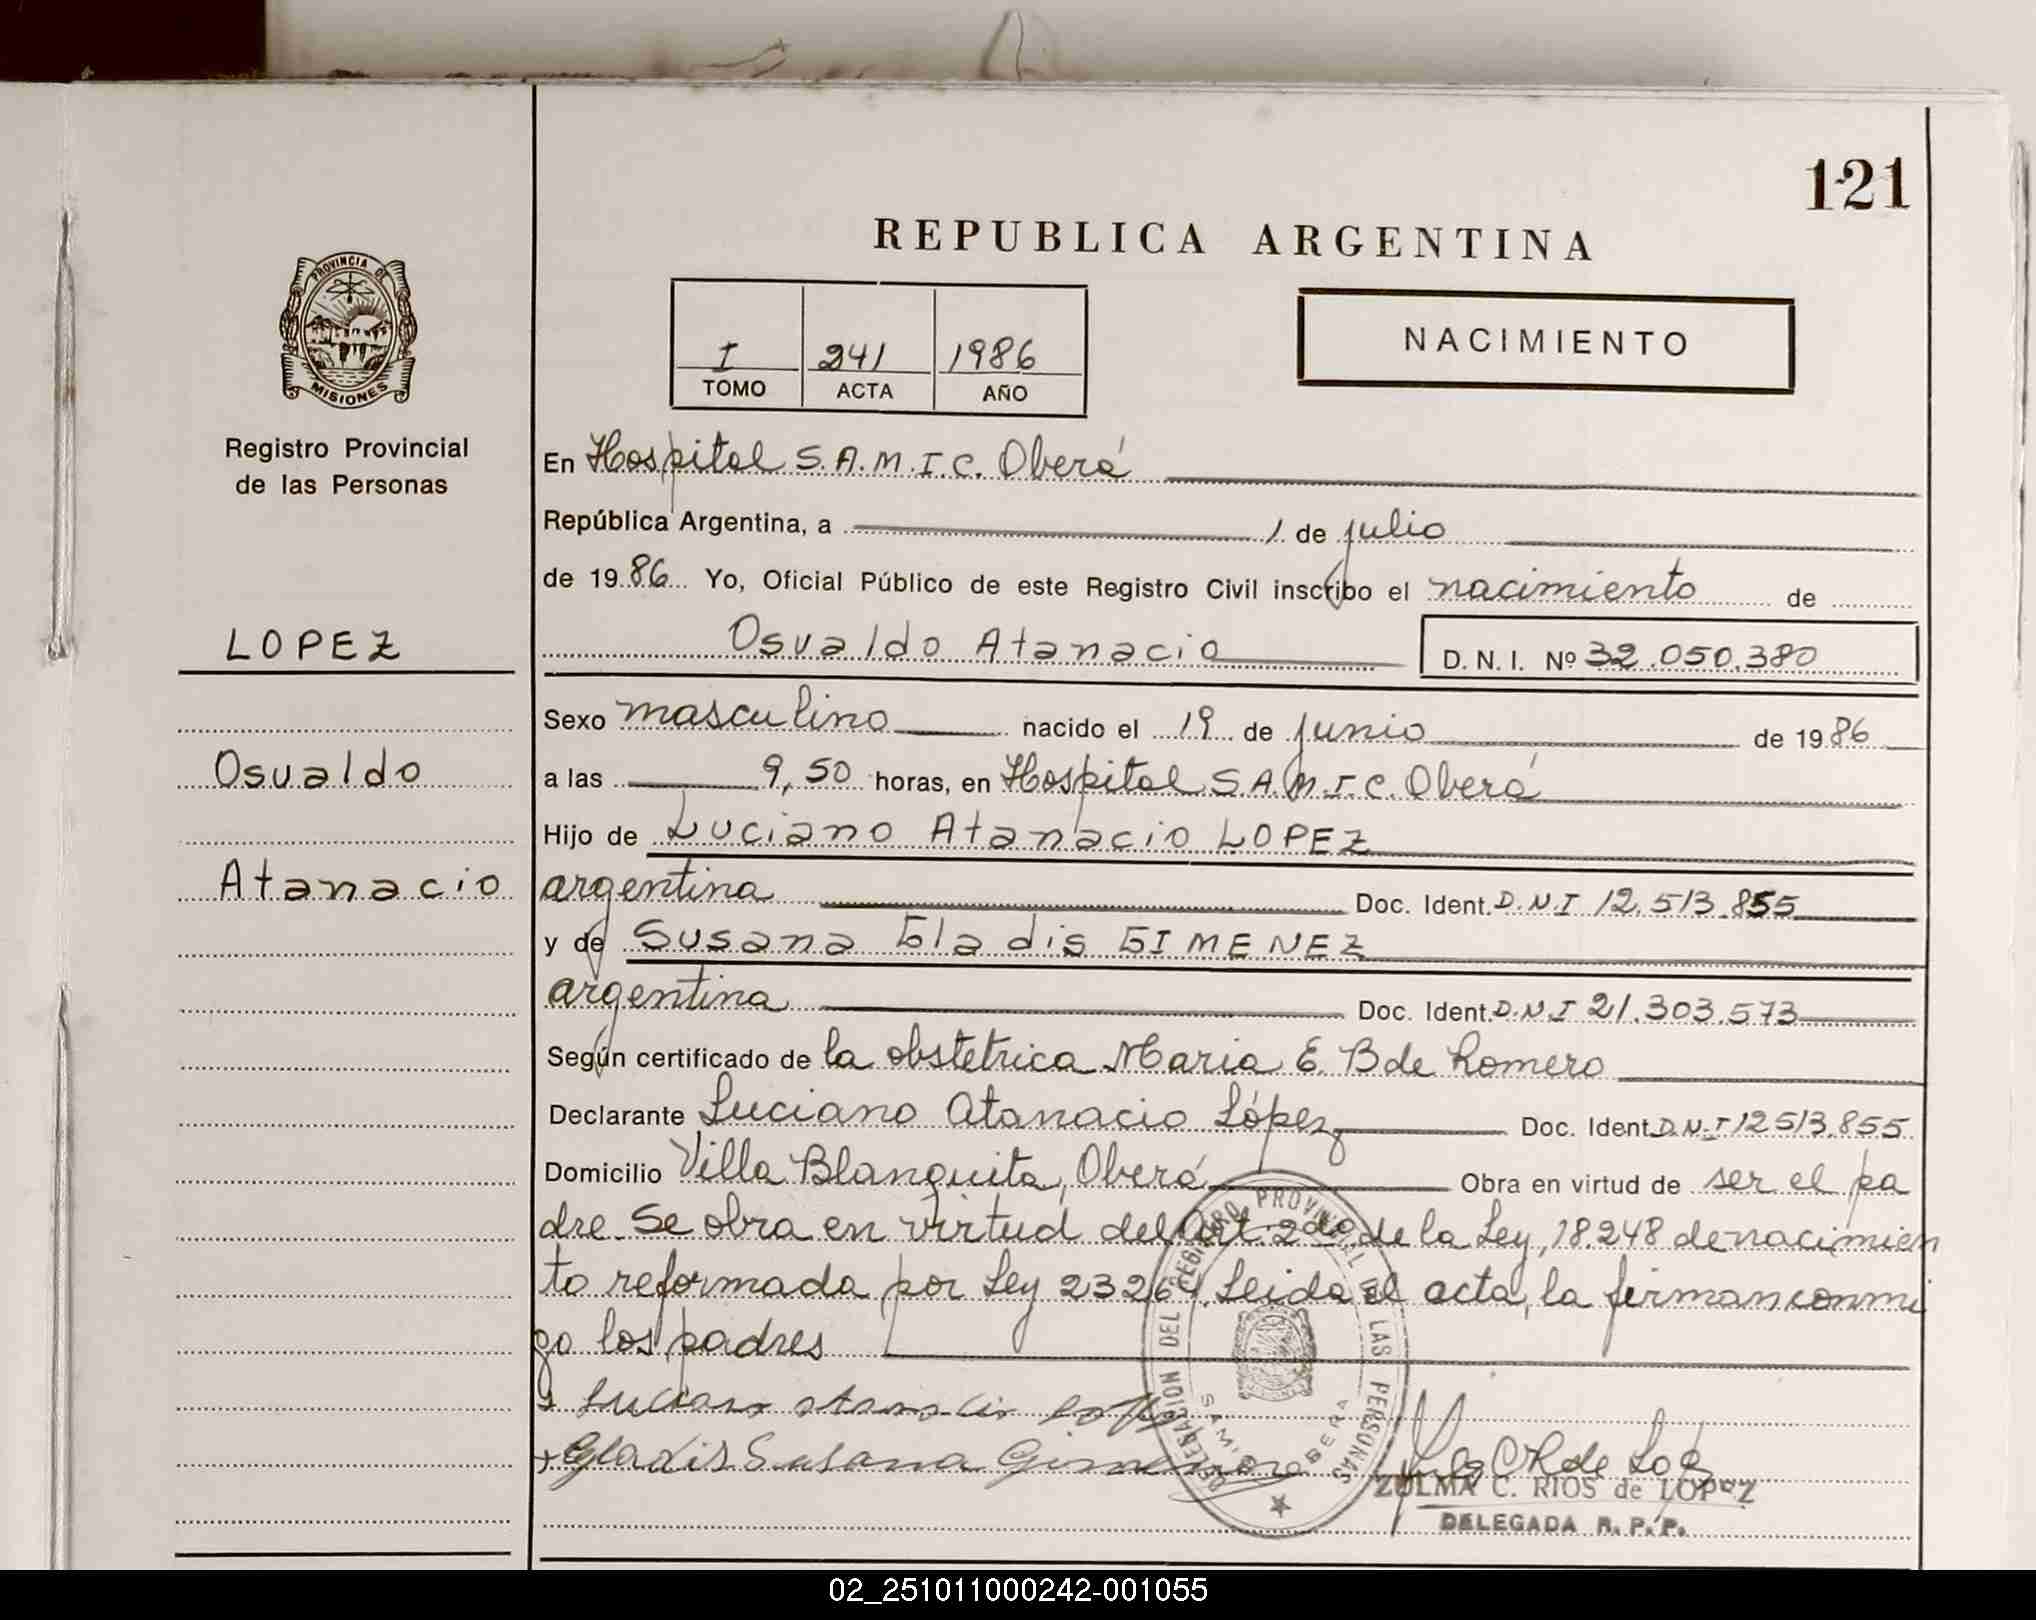 121
REPUBLICA ARGENTINA
PROVINCIA DE
MISIONES
Registro Provincial
de las Personas
I 241 1986
TOMO ACTA AÑO
NACIMIENTO
En Hospital S.A.M.I.C. Oberá
República Argentina, a 1 de julio
de 1986 Yo, Oficial Público de este Registro Civil inscribo el nacimiento de
LOPEZ
Osvaldo Atanacio D.N.I. Nº 32.050.380
Sexo masculino nacido el 19 de junio de 1986
Osvaldo
a las 9,50 horas, en Hospital S.A.M.I.C. Oberá
Hijo de Luciano Atanacio LOPEZ
Atanacio
argentina Doc. Ident. D.N.I 12.513.855
y de Susana Gladis GIMENEZ
argentina Doc. Ident. D.N.I 21.303.573
Según certificado de la obstetrica Maria E. B de Romero
Declarante Luciano Atanacio López Doc. Ident. D.N.I 12513.855
Domicilio Villa Blanquita, Oberá Obra en virtud de ser el pa
dre. Se obra en virtud del Art. 2do de la Ley, 18.248 de nacimien
to reformada por Ley 23264. Leida el acta, la firman conmi
go los padres
Luciano Atanacio
Gladis Susana Gimenez
DELEGACION DEL REGISTRO PROVINCIAL DE LAS PERSONAS
SAMIC OBERA
ZULMA C. RIOS de LOPEZ
DELEGADA R. P. P.
02_251011000242-001055